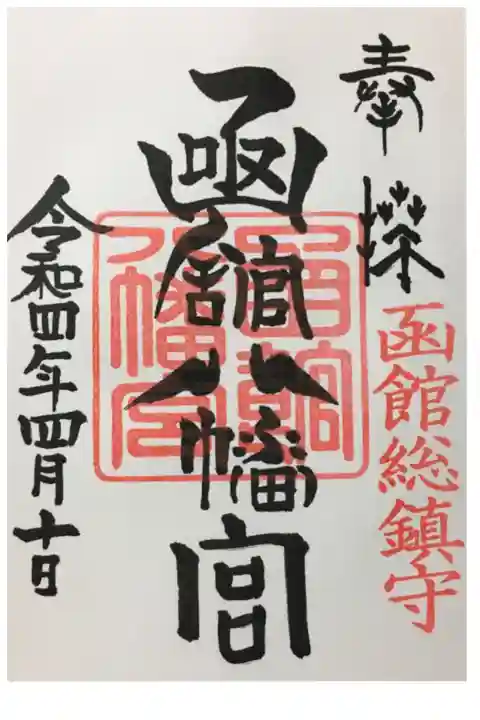 奉拝
函館総鎮守
函館八幡宮
令和四年四月十日
函館八幡宮